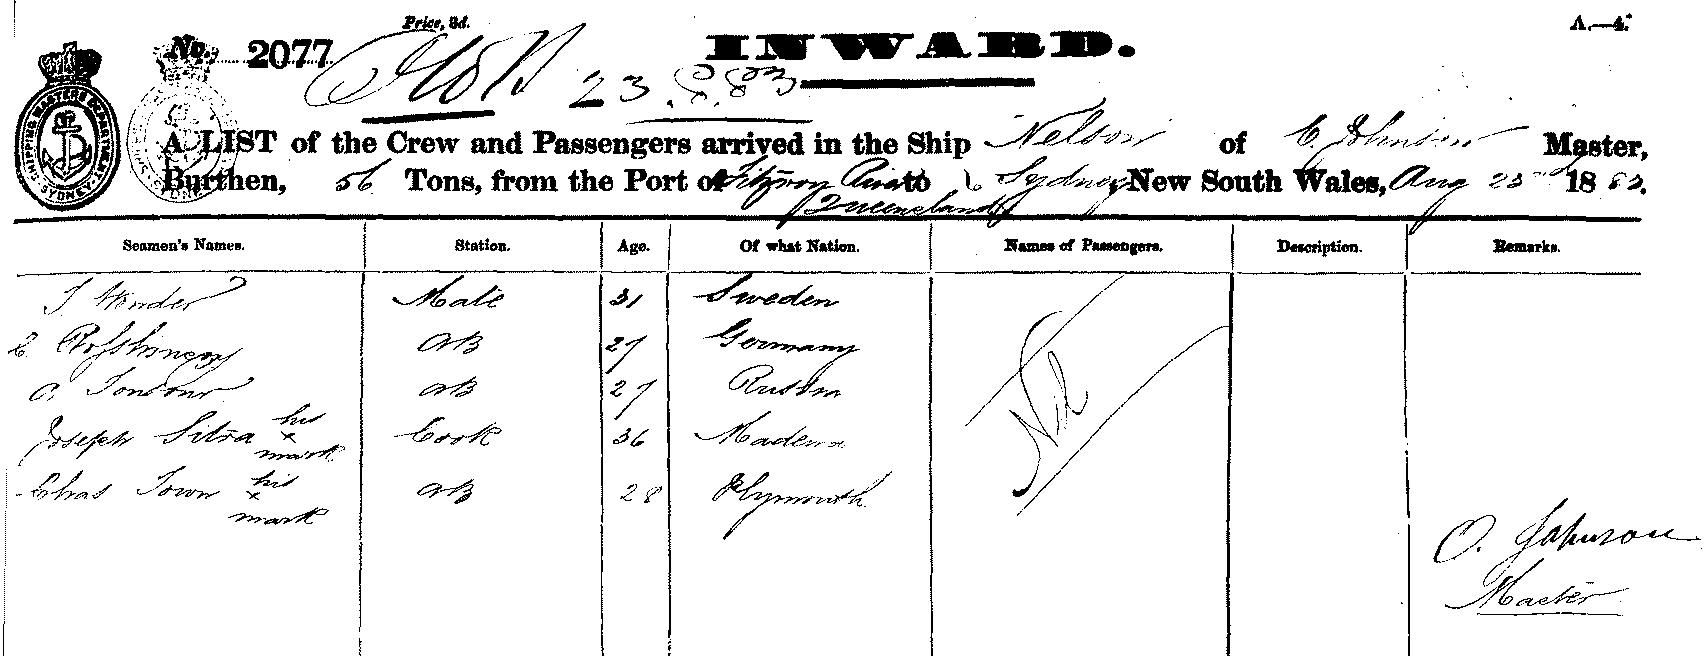 Price, 3d.
A.—4.
No. 2077
INWARD.
23.8.83
SHIPPING MASTERS DEPARTMENT
A LIST of the Crew and Passengers arrived in the Ship Nelson of C Johnson Master,
Burthen, 56 Tons, from the Port of Fitzroy River to Sydney New South Wales, Aug 23 1883.
Queensland
Seamen's Names. Station. Age. Of what Nation. Names of Passengers. Description. Remarks.
Mate 31 Sweden
C. AB 27 Germany
AB 27 Russia
Nil
Joseph Silva his x mark Cook 36 Madeira
Chas Town his x mark AB 28 Plymouth
O. Johnson
Master